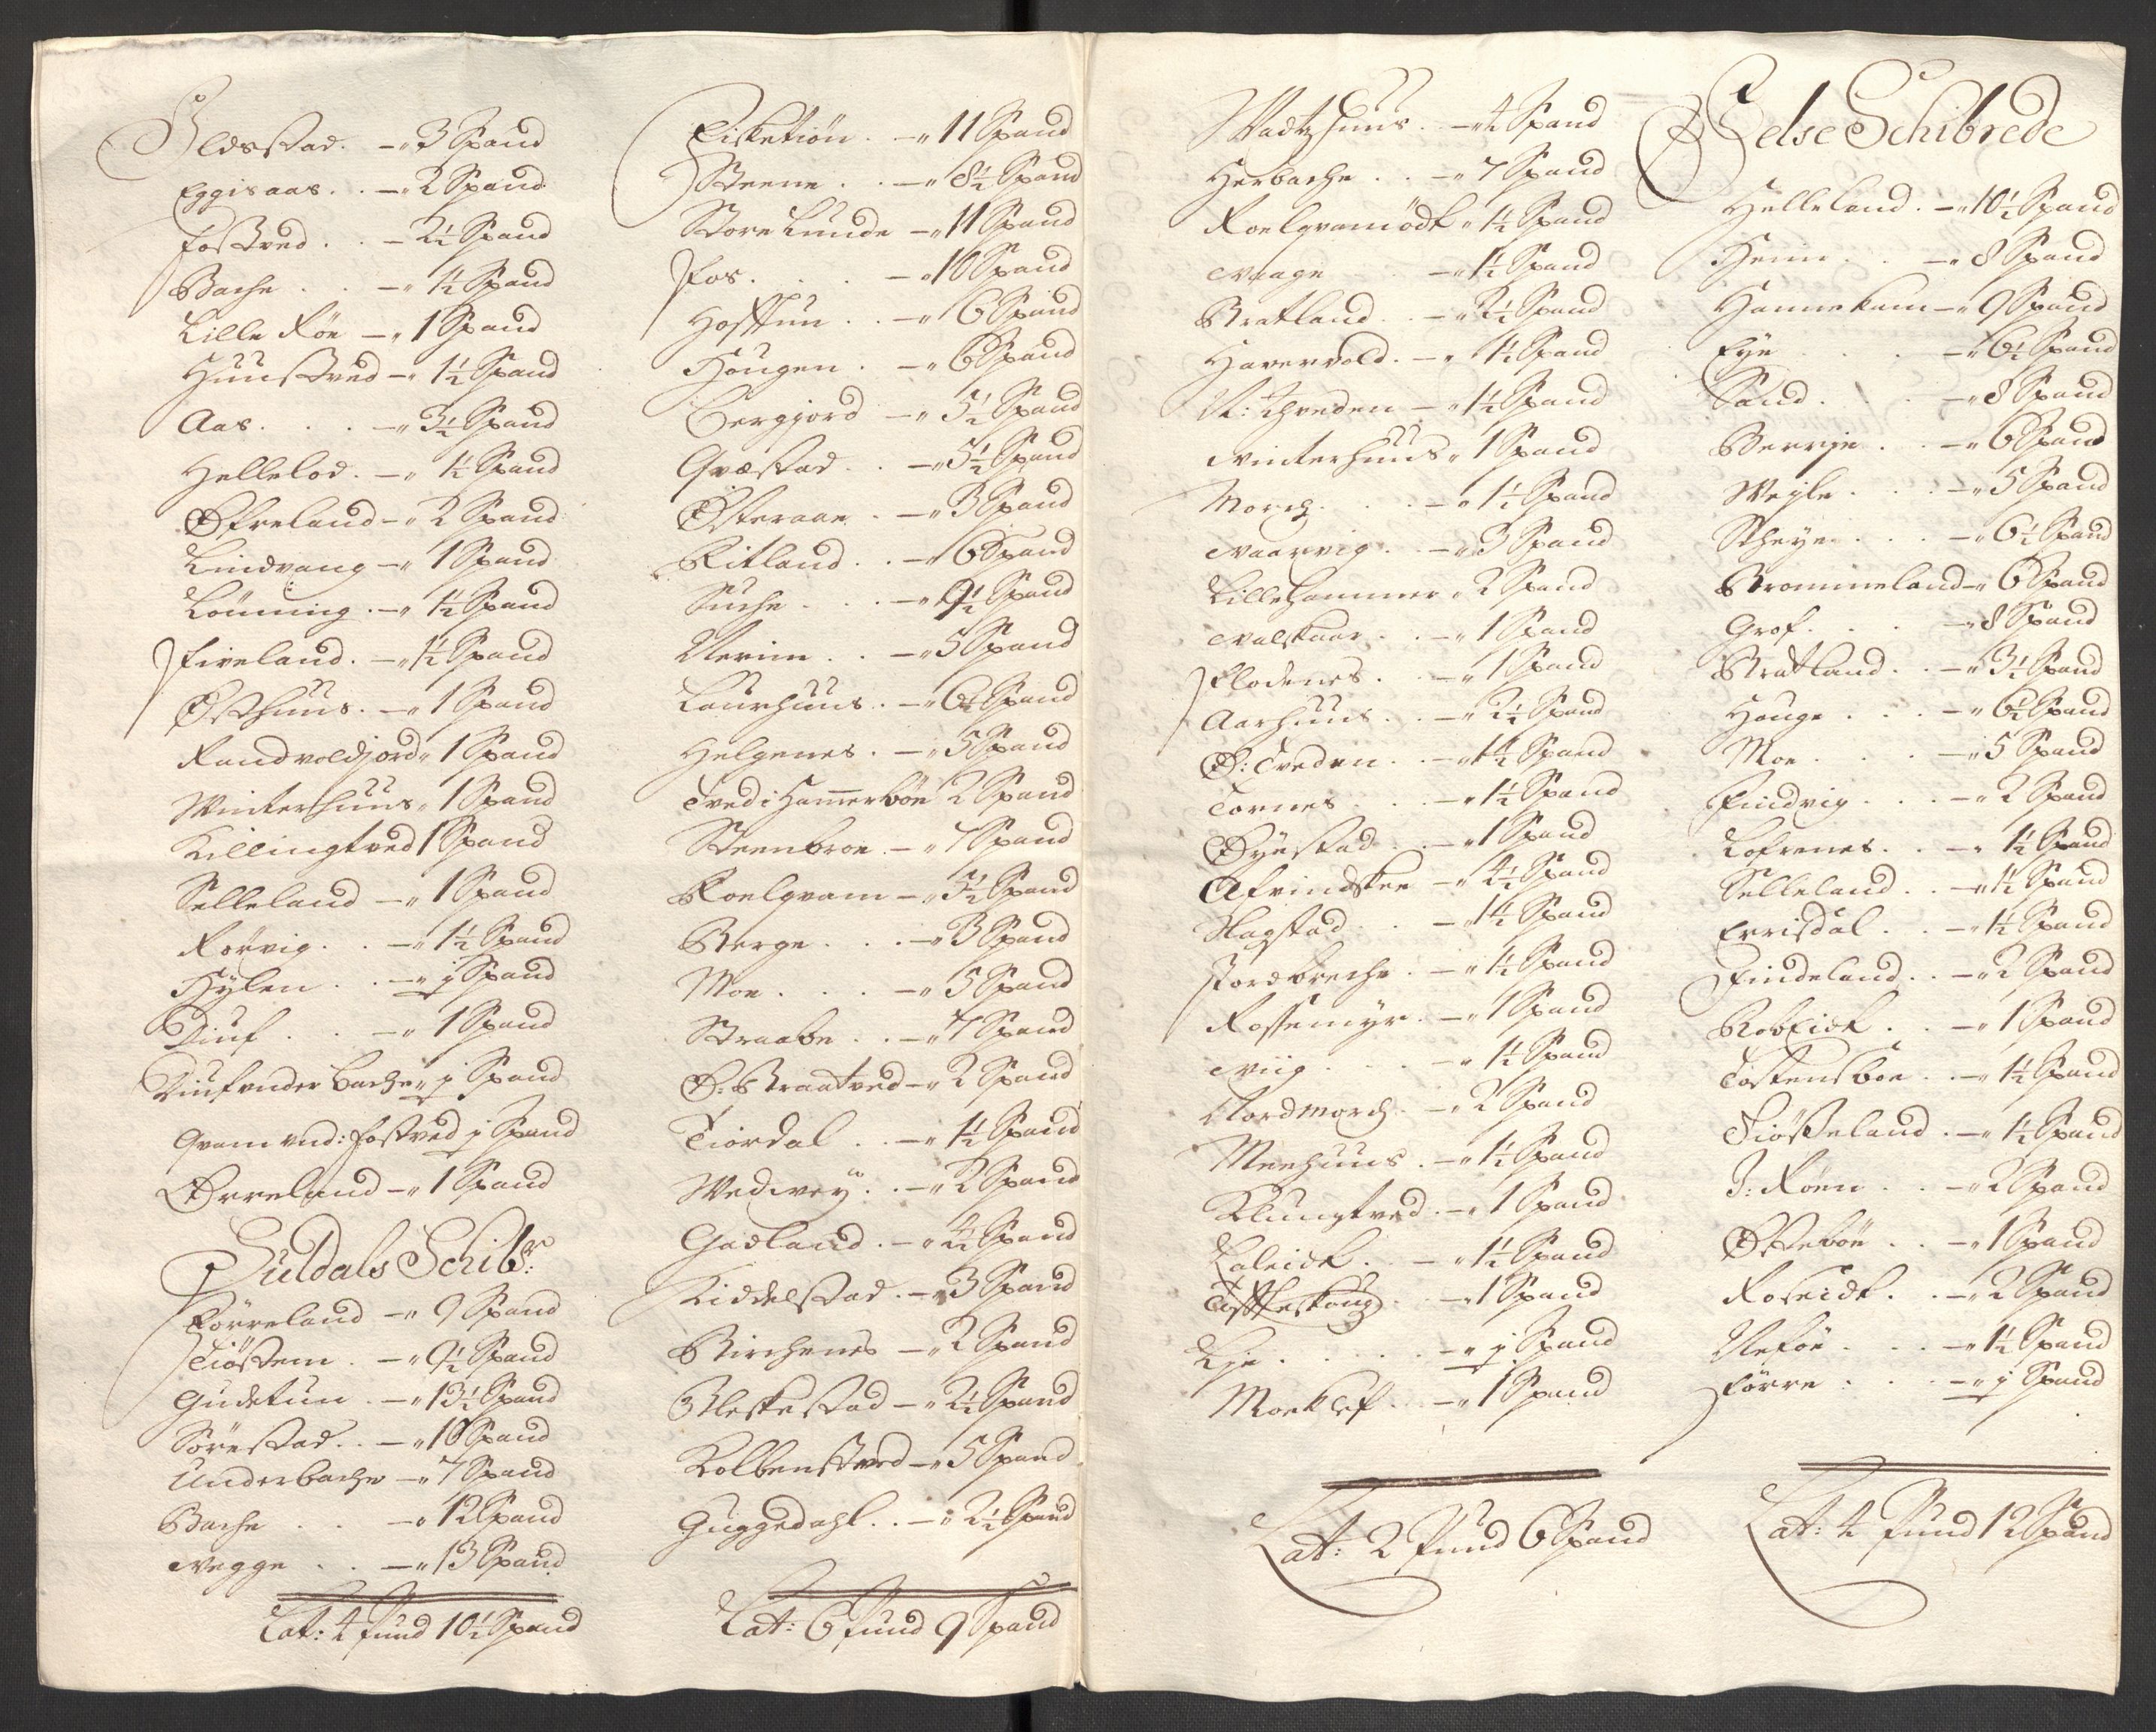 Eldsstad. - „ 3 Spand
Eggisaas. . - „ 2 Spand
Fostved . . - 2½ Spand
Bache . . - „ 1½ Spand
Lille Røe - „ 1 Spand
Huustved - „ 1½ Spand
Aas. . . - „ 3½ Spand
Hellelod. - „ 1½ Spand
Øfreland - „ 2 Spand
Lindvang - „ 1 Spand
Lønning. - „ 1½ Spand
Fiveland. - „ 1½ Spand
Østhuus. - „ 1 Spand
Randvoldjord „ 1 Spand
Winterhuus „ 1 Spand
Killingtved 1 Spand
Selleland - „ 1 Spand
Rørvig. . - „ 1½ Spand
Hylen . . - „ j Spand
Diuf . . - „ 1 Spand
Diuf under Bache „ j Spand
Qvam und: Fostved j Spand
Ørreland - „ 1 Spand
Suldals Schibr:
Førreland - „ 9 Spand
Tiøstem . - „ 9½ Spand
Gudetun . - „ 13½ Spand
Sørestad. . - „ 10 Spand
Underbache - „ 7 Spand
Bache . . - „ 12 Spand
Vegge . . - „ 13 Spand
Lat: 4 Pund 10½ Spand
Fisketiøn. - „ 11 Spand
Steene . . - „ 8½ Spand
Store Lunde - „ 11 Spand
Fos. . . . - „ 10 Spand
Hoftun . . - „ 6 Spand
Hougen . - „ 6 Spand
Bergjord - „ 5½ Spand
Qvæstad. . - „ 5½ Spand
Østeraae . - „ 3 Spand
Ritland. . - „ 6 Spand
Suche . . . - „ 9½ Spand
Nerim . . - „ 5 Spand
Laurhuus. - „ 6½ Spand
Helgenes. - „ 5 Spand
Tved i Hamerbøe 2 Spand
Steenbroe. - „ 7 Spand
Roelqvam - „ 5½ Spand
Berge . . . - „ 3 Spand
Moe . . . - „ 5 Spand
Straabe . . - „ 7 Spand
Ø: Braatved - „ 2 Spand
Tiørdal . . - „ 1½ Spand
Wedvey . . - „ 2 Spand
Gadland. - „ 4½ Spand
Kiddelstad. - „ 3 Spand
Birchenes - „ 2 Spand
Bleskestad - „ 2½ Spand
Kolbenstved - „ 5 Spand
Guggedahl. . - „ 2½ Spand
Lat: 6 Pund 9 Spand
Wadtzhuus. - „ 4 Spand
Herbache . . - „ 7 Spand
Roelqvamødt „ 1½ Spand
Vaage . - „ 1½ Spand
Bratland. . - „ 2½ Spand
Havervold. - „ 1½ Spand
N: Schreden - „ 1½ Spand
Vinterhuus „ 1 Spand
Morch. . . . - „ 1½ Spand
Vaarvig. . - „ 3 Spand
Lillehammer „ 2 Spand
Valskaar. . - „ 1 Spand
Flodenes. . - „ 1 Spand
Aarhuus. . - „ 2½ Spand
Ø: Tveden. . - „ 1½ Spand
Tornes . . . - „ 1½ Spand
Øyestad . . - „ 1 Spand
Afvindsken - „ 4½ Spand
Hagstad. . - „ 1½ Spand
Fordbreche. - „ 1½ Spand
Rossemyr. - „ 1 Spand
Viig . . . - „ 1½ Spand
Nordmorch. - „ 2 Spand
Meehuus. - „ 1½ Spand
Klungtved. - „ 1 Spand
Laleidt. . - „ 1½ Spand
- „ 1 Spand
Lie . . . . - „ j Spand
Moeklef. . - „ 1 Spand
Lat: 2 Pund 6 Spand
Jelse Schibrede
Helleland. - „ 10½ Spand
Heim . . - „ 8 Spand
Hannekam - „ 9 Spand
Eye . . . . - „ 6½ Spand
Sand . . . - „ 8 Spand
Berrje . . - „ 6 Spand
Wegle . . . - „ 5 Spand
Scheye . . . - „ 6½ Spand
Brommeland - „ 6 Spand
Grof. . . . - „ 8 Spand
Bratland. . - „ 3½ Spand
Houge . . . - „ 6½ Spand
Moe . . . . - „ 5 Spand
Findvig . . . - „ 2 Spand
Lofrenes. . - „ 1½ Spand
Selleland. . - „ 1½ Spand
Errisdal. . - „ 1½ Spand
Findeland. . - „ 2 Spand
Robeidt. . - „ 1 Spand
Tostensboe . - „ 1½ Spand
Siøsteland. - „ 1½ Spand
I: Røen . . - „ 2 Spand
Østebøe . . - „ 1 Spand
Roseidt. . - „ 2 Spand
Neføe . . . - „ 1½ Spand
Førre . . . - „ j Spand
Lat: 4 Pund 12 Spand